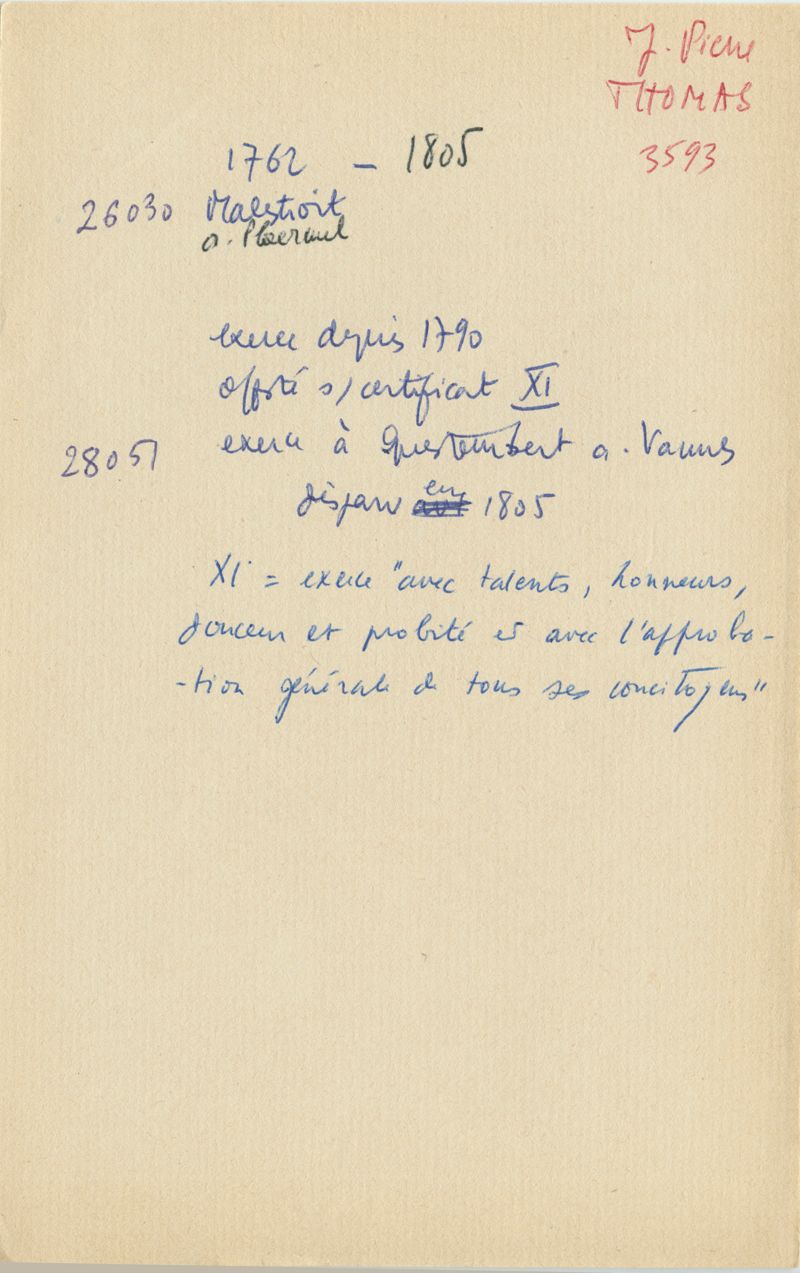 J. Pierre
THOMAS
3593
1762 – 1805
26030 Malestroit
a. Ploermel
exerce depuis 1790
s/certificat XI
28051 exerce à Questembert a. Vannes
disparu en 1805
XI = exerce "avec talents, honneurs,
douceur et probité et avec l'approba-
-tion générale de tous ses concitoyens"